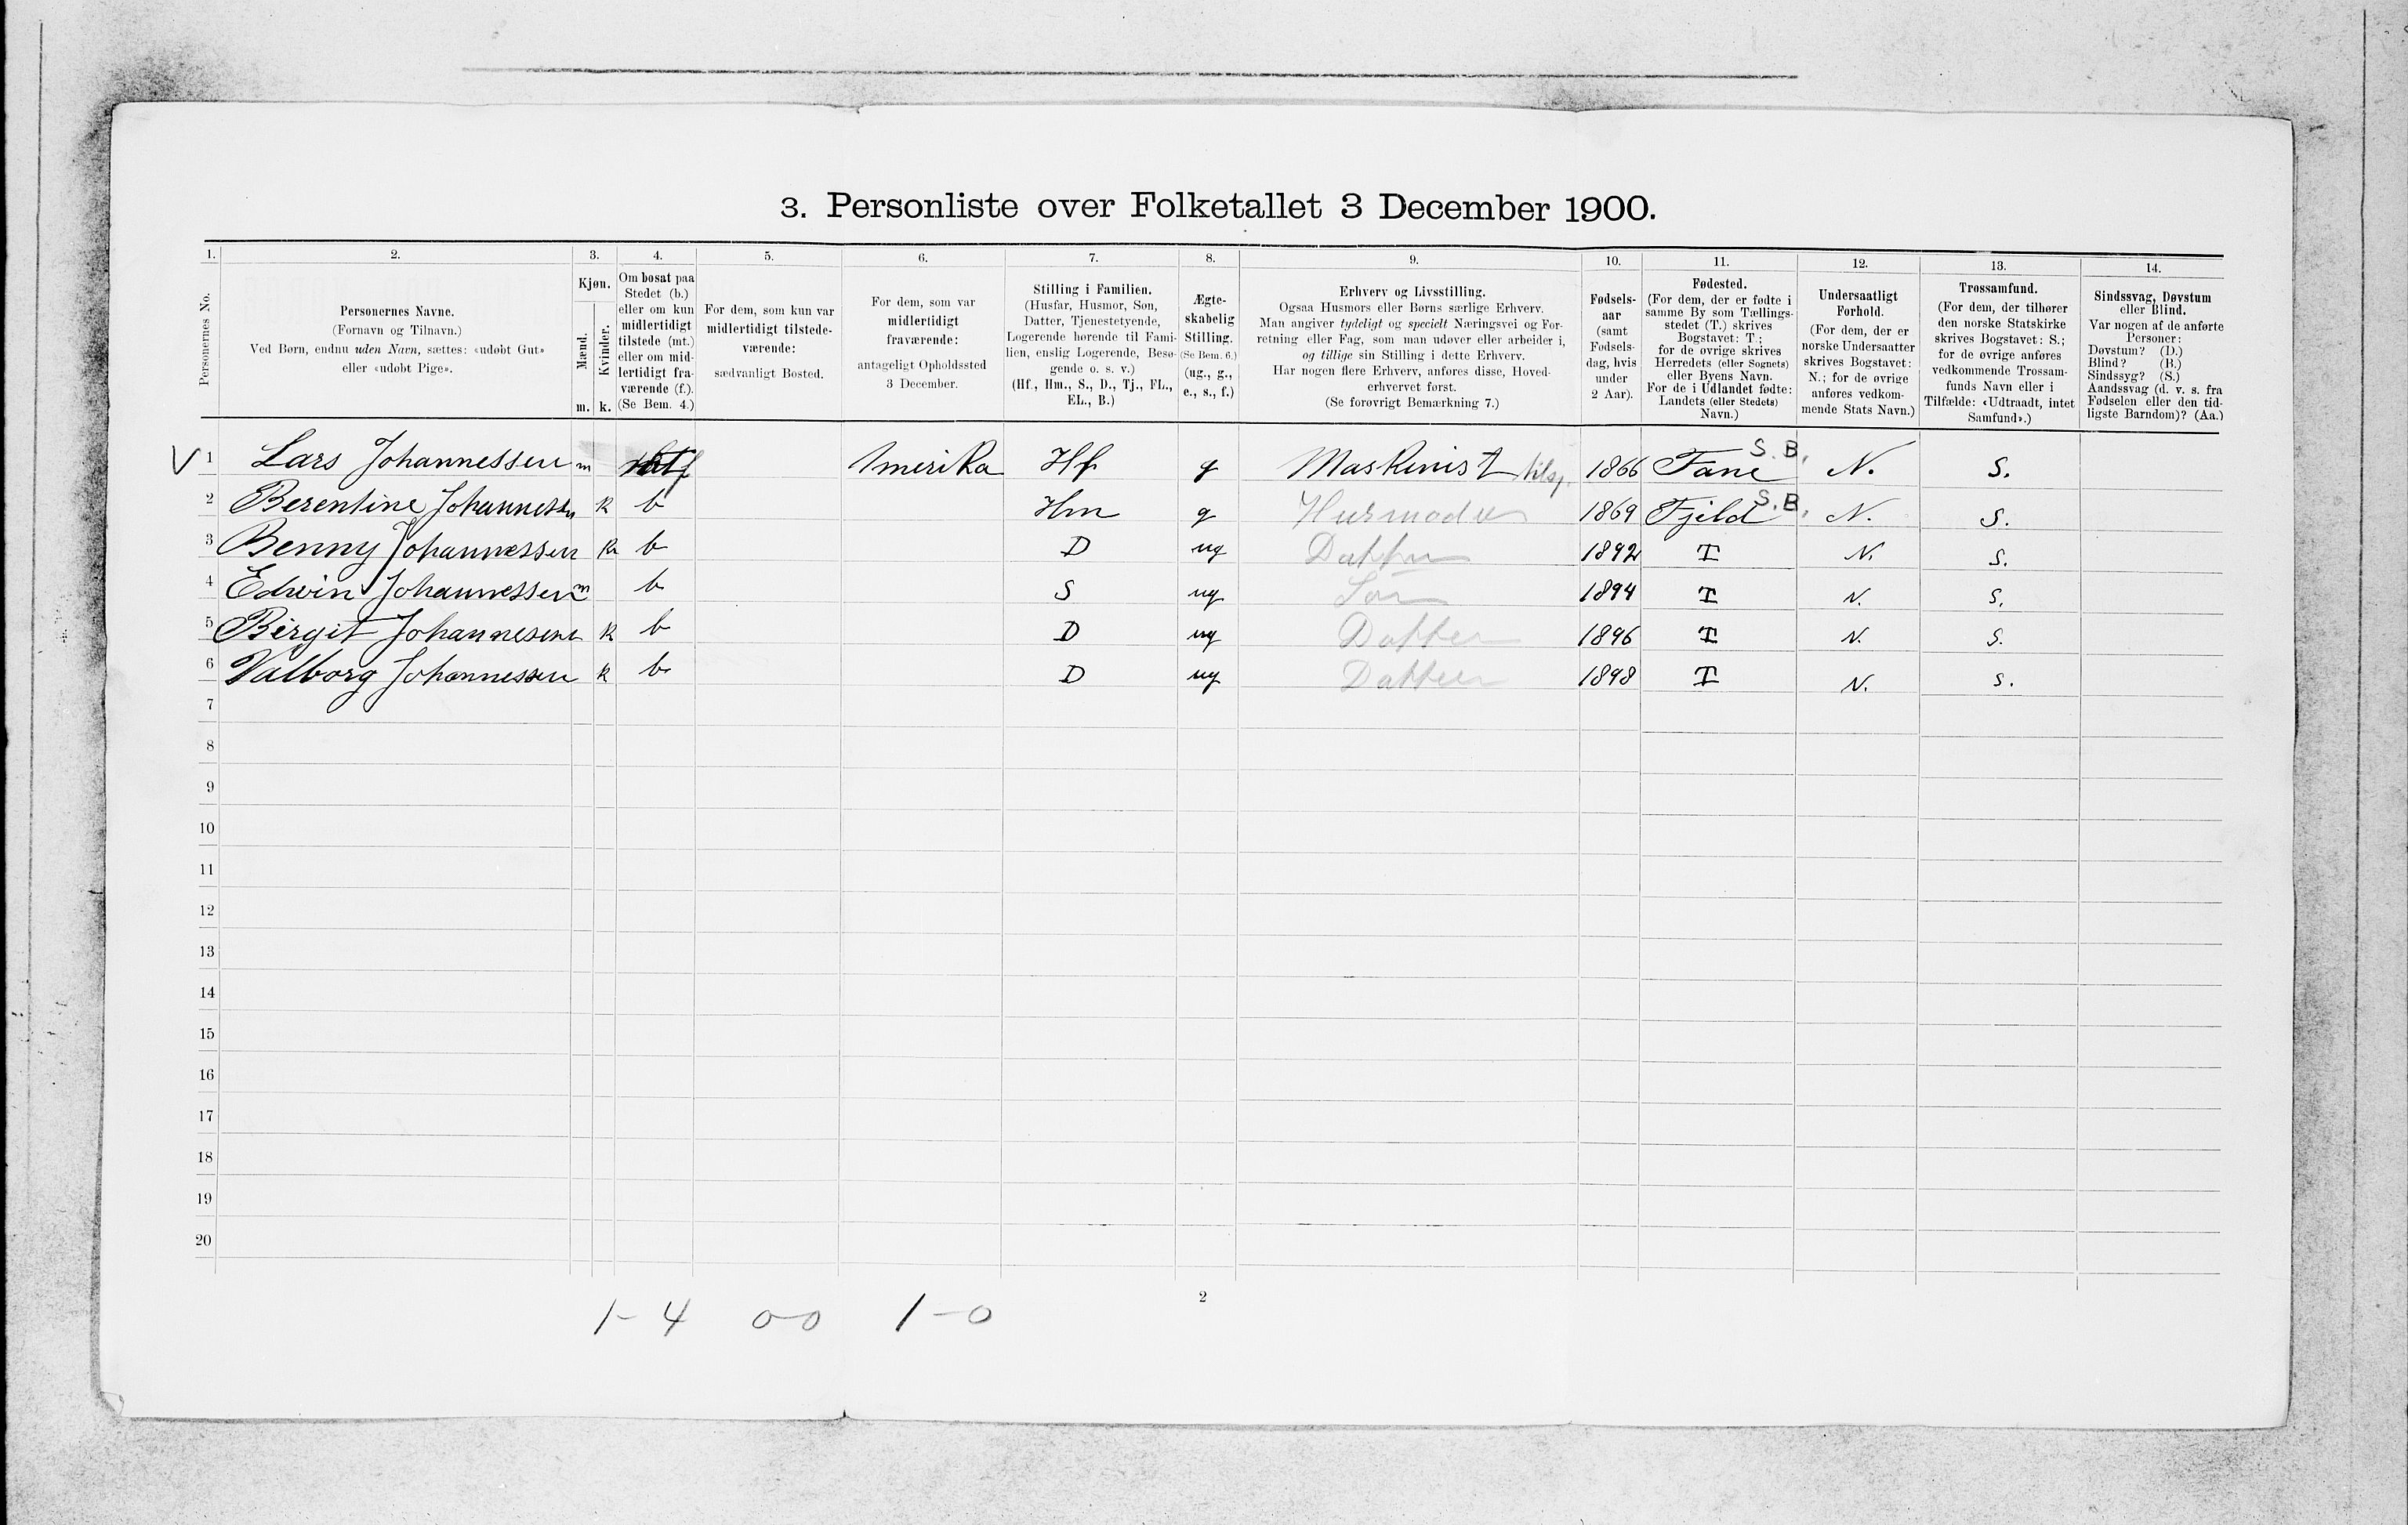 3. Personliste over Folketallet 3 December 1900.
1. 2. 3. 4. 5. 6. 7. 8. 9. 10. 11. 12. 13. 14.
Personernes No.
Personernes Navne.
(Fornavn og Tilnavn.)
Ved Børn, endnu uden Navn, sættes: «udøbt Gut»
eller «udøbt Pige».
Kjøn.
Mænd.
Kvinder.
m. k.
Om bosat paa
Stedet (b.)
eller om kun
midlertidigt
tilstede (mt.)
eller om mid-
lertidigt fra-
værende (f.).
(Se Bem. 4.)
For dem, som kun var
midlertidigt tilstede-
værende:
sædvanligt Bosted.
For dem, som var
midlertidigt
fraværende:
antageligt Opholdssted
3 December.
Stilling i Familien.
(Husfar, Husmor, Søn,
Datter, Tjenestetyende,
Logerende hørende til Fami-
lien, enslig Logerende, Besø-
gende o. s. v.)
(Hf., Hm., S., D., Tj., FL.,
EL., B.)
Ægte-
skabelig
Stilling.
(Se Bem. 6.)
(ug., g.,
e., s., f.)
Erhverv og Livsstilling.
Ogsaa Husmors eller Børns særlige Erhverv.
Man angiver tydeligt og specielt Næringsvei og For-
retning eller Fag, som man udøver eller arbeider i,
og tillige sin Stilling i dette Erhverv.
Har nogen flere Erhverv, anføres disse, Hoved-
erhvervet først.
(Se forøvrigt Bemærkning 7.)
Fødsels-
aar
(samt
Fødsels-
dag, hvis
under
2 Aar).
Fødested.
(For dem, der er fødte i
samme By som Tællings-
stedet (T.) skrives
Bogstavet: T.;
for de øvrige skrives
Herredets (eller Sognets)
eller Byens Navn.
For de i Udlandet fødte:
Landets (eller Stedets)
Navn.)
Undersaatligt
Forhold.
(For dem, der er
norske Undersaatter
skrives Bogstavet:
N.; for de øvrige
anføres vedkom-
mende Stats Navn.)
Trossamfund.
(For dem, der tilhører
den norske Statskirke
skrives Bogstavet: S.;
for de øvrige anføres
vedkommende Trossam-
funds Navn eller i
Tilfælde: «Udtraadt, intet
Samfund».)
Sindssvag, Døvstum
eller Blind.
Var nogen af de anførte
Personer:
Døvstum? (D.)
Blind? (B.)
Sindssyg? (S.)
Aandssvag (d. v. s. fra
Fødselen eller den tid-
ligste Barndom)? (Aa.)
V 1 Lars Johannessen m f Amerika Hf g Maskinist 1866 Fane S.B. N. S.
2 Berentine Johannessen k b Hm g Husmoder 1869 Fjeld S.B. N. S.
3 Benny Johannessen k b D ug Datter 1892 T N. S.
4 Edwin Johannessen m b S ug Søn 1894 T N. S.
5 Birgit Johannesene k b D ug Datter 1896 T N. S.
6 Valborg Johannessen k b D ug Datter 1898 T N. S.
7
8
9
10
11
12
13
14
15
16
17
18
19
20
2
1-4 0-0 1-0